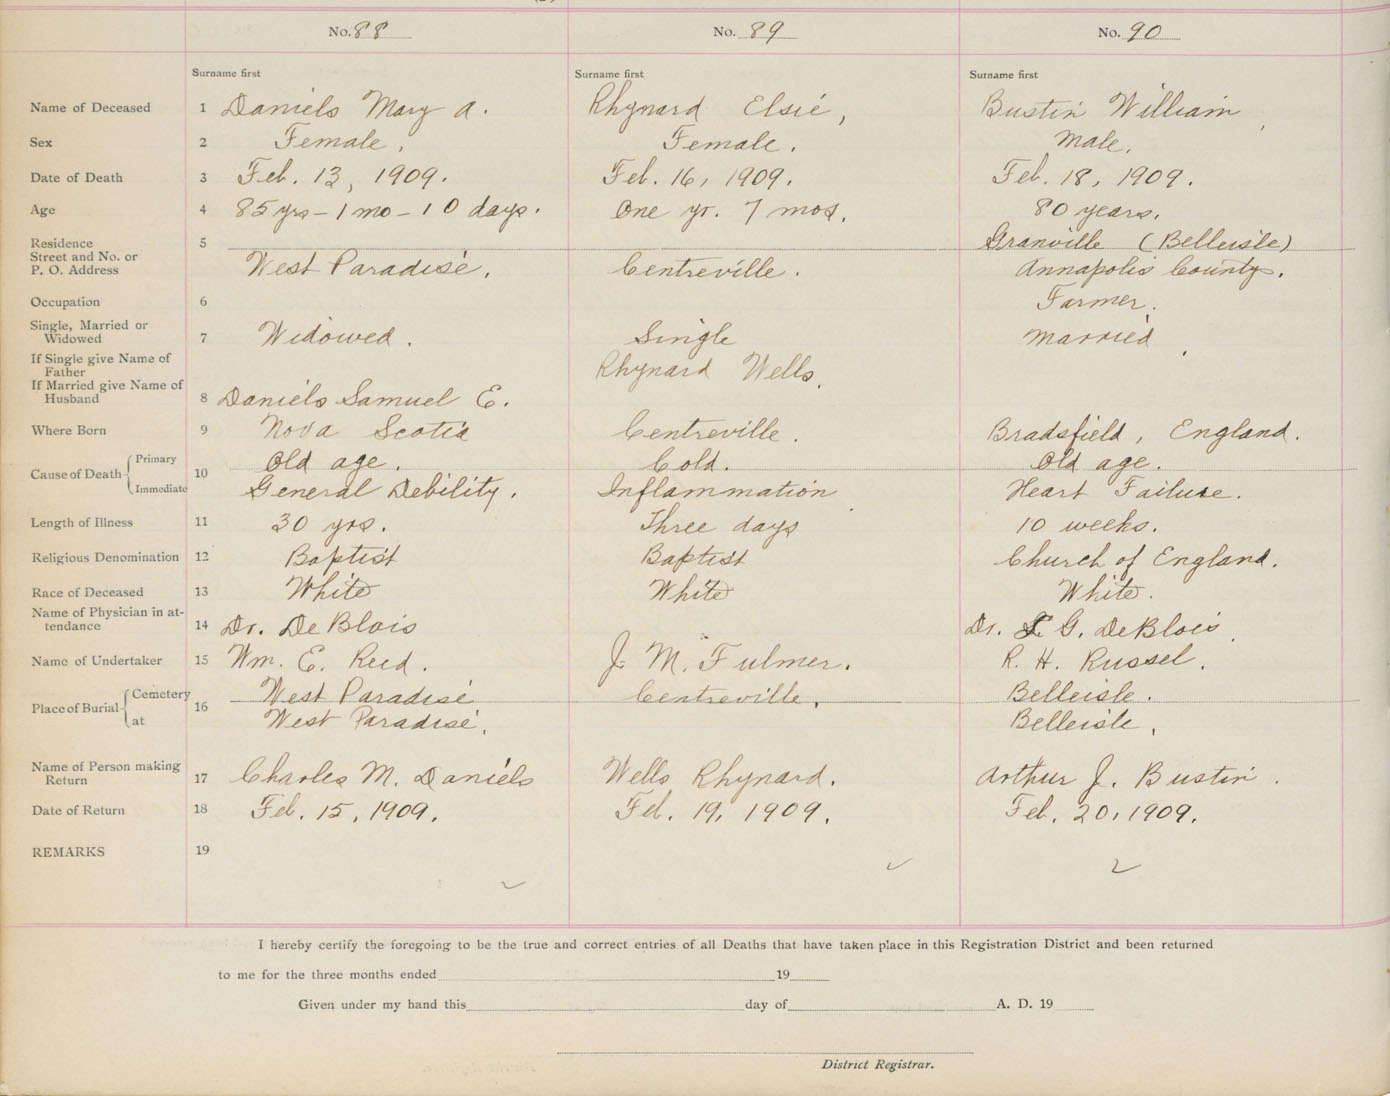 No. 88 No. 89 No. 90
Surname first Surname first Surname first
Name of Deceased 1 Daniels Mary A. Rhynard Elsie, Bustin William,
Sex 2 Female. Female. Male.
Date of Death 3 Feb. 13, 1909. Feb. 16, 1909. Feb. 18, 1909.
Age 4 85 yrs - 1 mo - 10 days. One yr. 7 mos. 80 years.
Residence 5 Granville (Belleisle)
Street and No. or
P. O. Address West Paradise. Centreville. Annapolis County.
Occupation 6 Farmer.
Single, Married or
Widowed 7 Widowed. Single Married.
If Single give Name of
Father Rhynard Wells.
If Married give Name of
Husband 8 Daniels Samuel E.
Where Born 9 Nova Scotia Centreville. Bradsfield, England.
Cause of Death Primary 10 Old age. Cold. Old age.
Immediate General Debility. Inflammation Heart Failure.
Length of Illness 11 30 yrs. Three days 10 weeks.
Religious Denomination 12 Baptist Baptist Church of England.
Race of Deceased 13 White White White.
Name of Physician in at-
tendance 14 Dr. DeBlois Dr. G. DeBlois.
Name of Undertaker 15 Wm. E. Reed. J. M. Fulmer. R. H. Russel.
Place of Burial Cemetery 16 West Paradise Centreville. Belleisle.
at West Paradise. Belleisle.
Name of Person making
Return 17 Charles M. Daniels Wells Rhynard. Arthur J. Bustin.
Date of Return 18 Feb. 15, 1909. Feb. 19, 1909. Feb. 20, 1909.
REMARKS 19
I hereby certify the foregoing to be the true and correct entries of all Deaths that have taken place in this Registration District and been returned
to me for the three months ended 19
Given under my hand this day of A. D. 19
District Registrar.